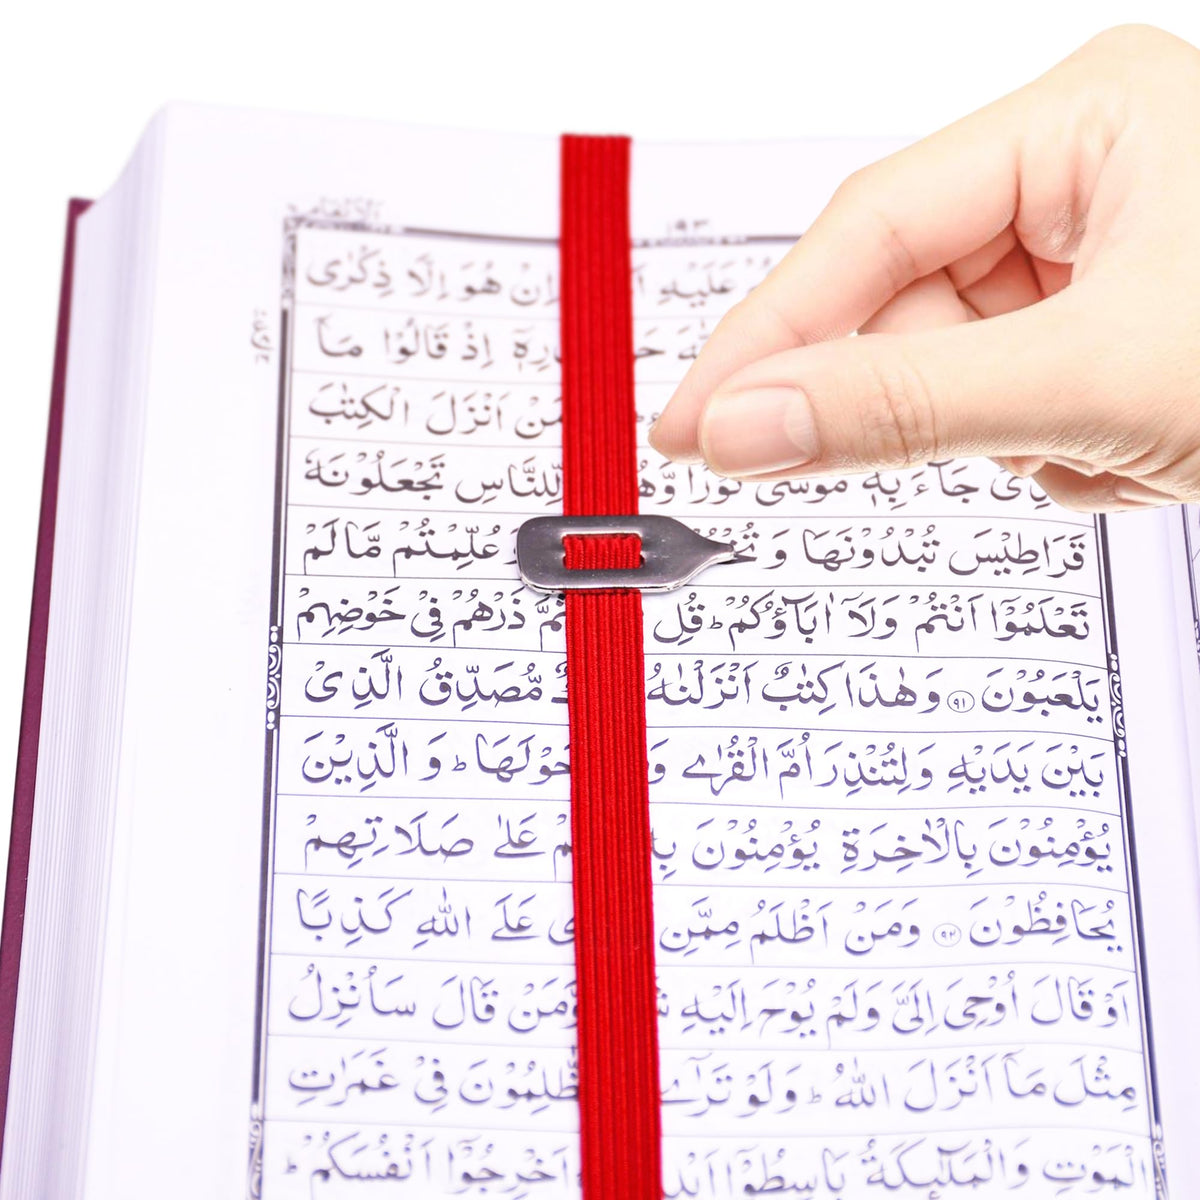 الانعام ١٩٣
عَلَيْهِ اِنْ هُوَ اِلَّا ذِكْرٰى
اِذْ قَالُوْا مَاۤ
مَنْ اَنْزَلَ الْكِتٰبَ
جَآءَ بِهٖ مُوْسٰى نُوْرًا لِّلنَّاسِ تَجْعَلُوْنَهٗ
قَرَاطِيْسَ تُبْدُوْنَهَا وَ عُلِّمْتُمْ مَّا لَمْ
تَعْلَمُوْۤا اَنْتُمْ وَلَاۤ اٰبَآؤُكُمْ ؕ قُلِ ذَرْهُمْ فِيْ خَوْضِهِمْ
يَلْعَبُوْنَ ۝٩١ وَهٰذَا كِتٰبٌ اَنْزَلْنٰهُ مُّصَدِّقُ الَّذِيْ
بَيْنَ يَدَيْهِ وَلِتُنْذِرَ اُمَّ الْقُرٰى حَوْلَهَا ؕ وَ الَّذِيْنَ
يُؤْمِنُوْنَ بِالْاٰخِرَةِ يُؤْمِنُوْنَ عَلٰى صَلَاتِهِمْ
يُحَافِظُوْنَ ۝٩٢ وَمَنْ اَظْلَمُ مِمَّنِ عَلَى اللّٰهِ كَذِبًا
اَوْ قَالَ اُوْحِيَ اِلَيَّ وَلَمْ يُوْحَ اِلَيْهِ وَّمَنْ قَالَ سَاُنْزِلُ
مِثْلَ مَاۤ اَنْزَلَ اللّٰهُ ؕ وَلَوْ تَرٰۤى فِيْ غَمَرٰتِ
الْمَوْتِ وَالْمَلٰٓئِكَةُ بَاسِطُوْۤا اَخْرِجُوْۤا اَنْفُسَكُمْ ؕ